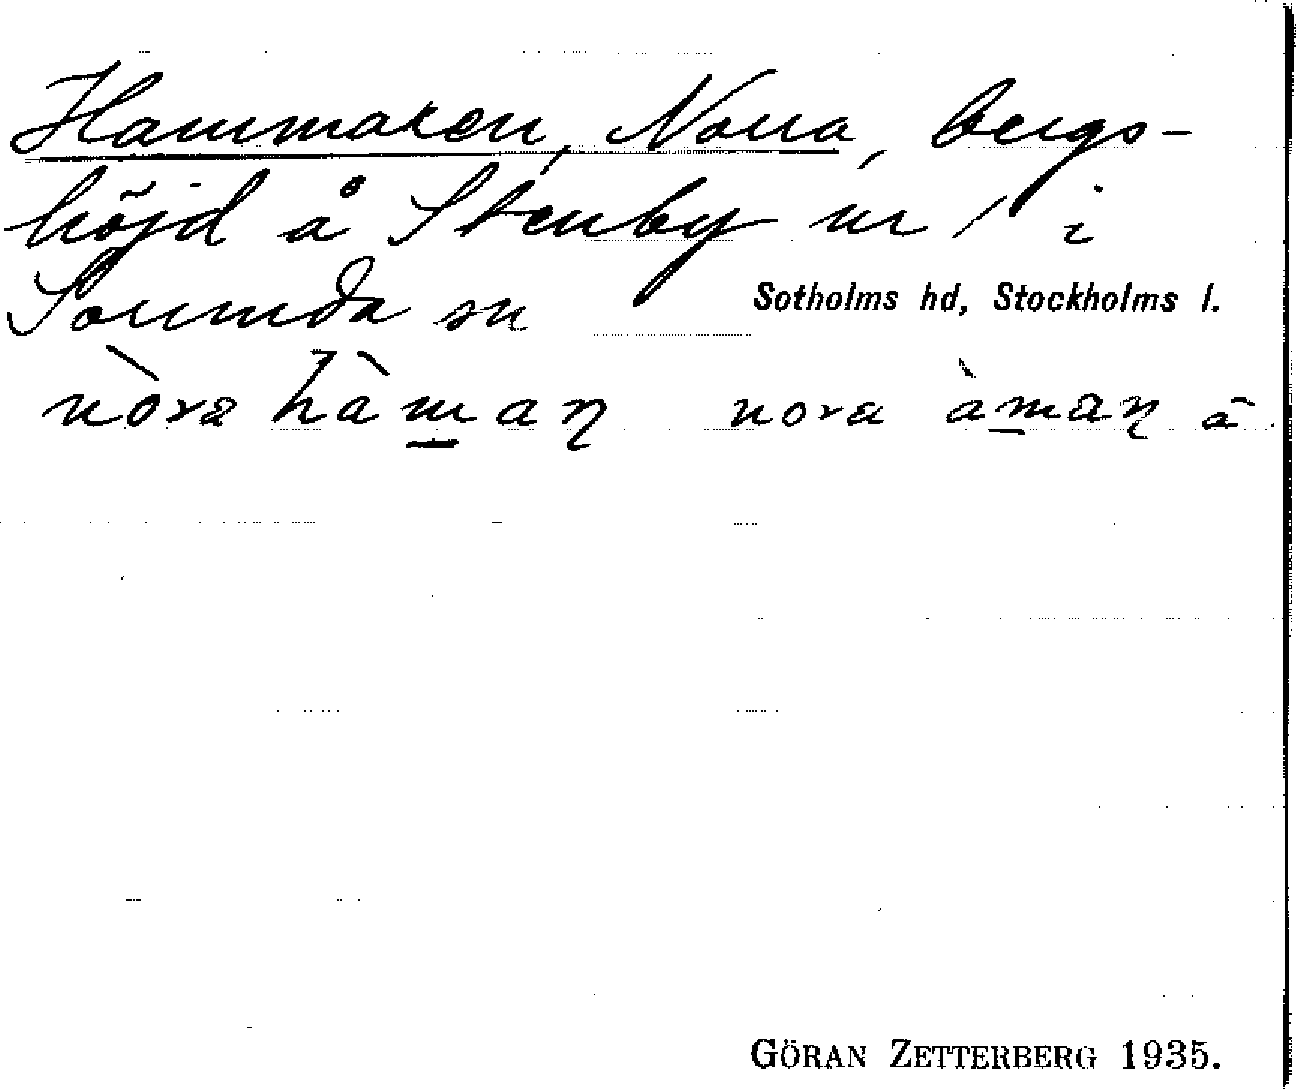 Hammaren, Norra, bergs-
höjd å Stenby nr 1 i
Sorunda sn Sotholms hd, Stockholms l.
nòra hàmaɳ nora àmaɳ ā
GÖRAN ZETTERBERG 1935.